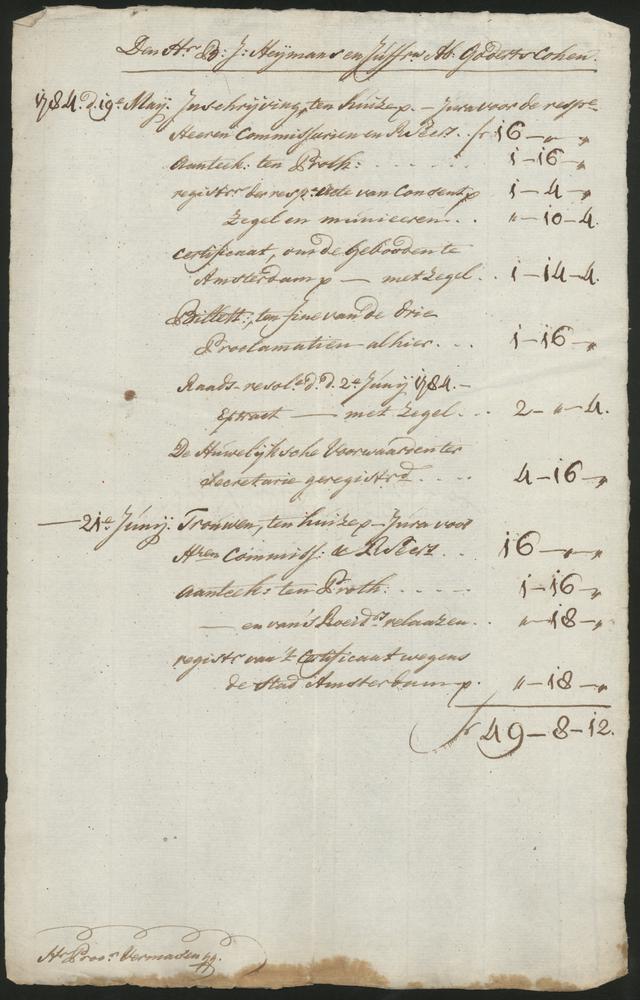 Den Hr. B: J: Heijmans en Juffrw Ab. Goderts Cohen.
1784. d. 19e Maij. Inschrijving, ten huize p. – Jura voor de respe.
Heeren Commissarissen en . . f 16 – „ „
Aanteek: ten Proth: . . . . . . 1 – 16 – „
registr. der resp: Acte van Consent p 1 – 4 – „
Zegel en munieeren . . „ – 10 – 4.
Certificaat, om de Gebooden te
Amsterdam p — met zegel . . 1 – 14 – 4.
Billett:, ten fine van de drie
Proclamatien alhier . . . 1 – 16 – „
Raads-resol. d. d. 2e Junij 1784. –
Extract — met zegel . . . 2 – „ – 4.
De Huwelijksche Voorwaarden ter
Secretarie geregistrd. . . . 4 – 16 – „
— 21e Junij. Trouwen, ten huize p – Jura voor
Hren Commiss: & . . 16 – „ – „
Aanteek: ten Proth: . . . . . 1 – 16 – „
— en van's relaazen . . „ – 18 – „
registr van 't Certificaat wegens
de Stad Amsterdam p. „ – 18 – „
f 49 – 8 – 12.
Hr Procr. Vermasen